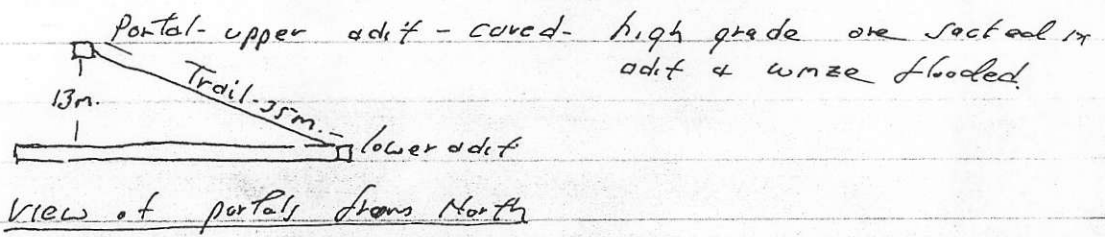 Portal - upper adit - caved - high grade ore sacked in
adit & winze flooded.
Trail - 35m. -
13m.
lower adit
View of portals from North